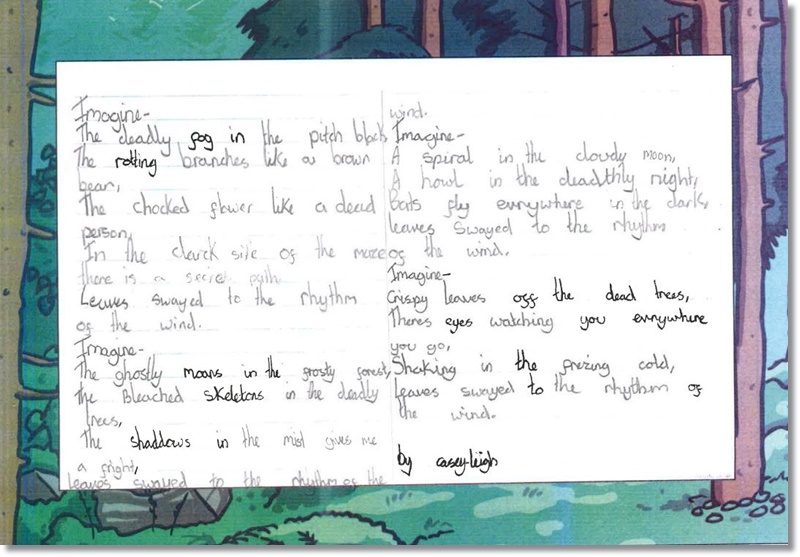 Imagine-
The deadly fog in the pitch black
The rotting branches like a brown
bear,
The chocked flower like a dead
person,
In the darck site of the maze
there is a secret path.
Leaves swayed to the rhythm
of the wind.
Imagine-
The ghostly moans in the frosty forest,
the Bleached skeletons in the deadly
trees,
The shaddows in the mist gives me
a fright,
leaves swayed to the rhythm of the
wind.
Imagine-
A spiral in the cloudy moon,
A howl in the deadthly night,
Bats fly evrywhere in the dark,
leaves swayed to the rhythm
of the wind.
Imagine-
Crispy leaves off the dead trees,
Theres eyes watching you evrywhere
you go,
Shaking in the frezing cold,
Leaves swayed to the rhythm of
the wind.
by casey-leigh